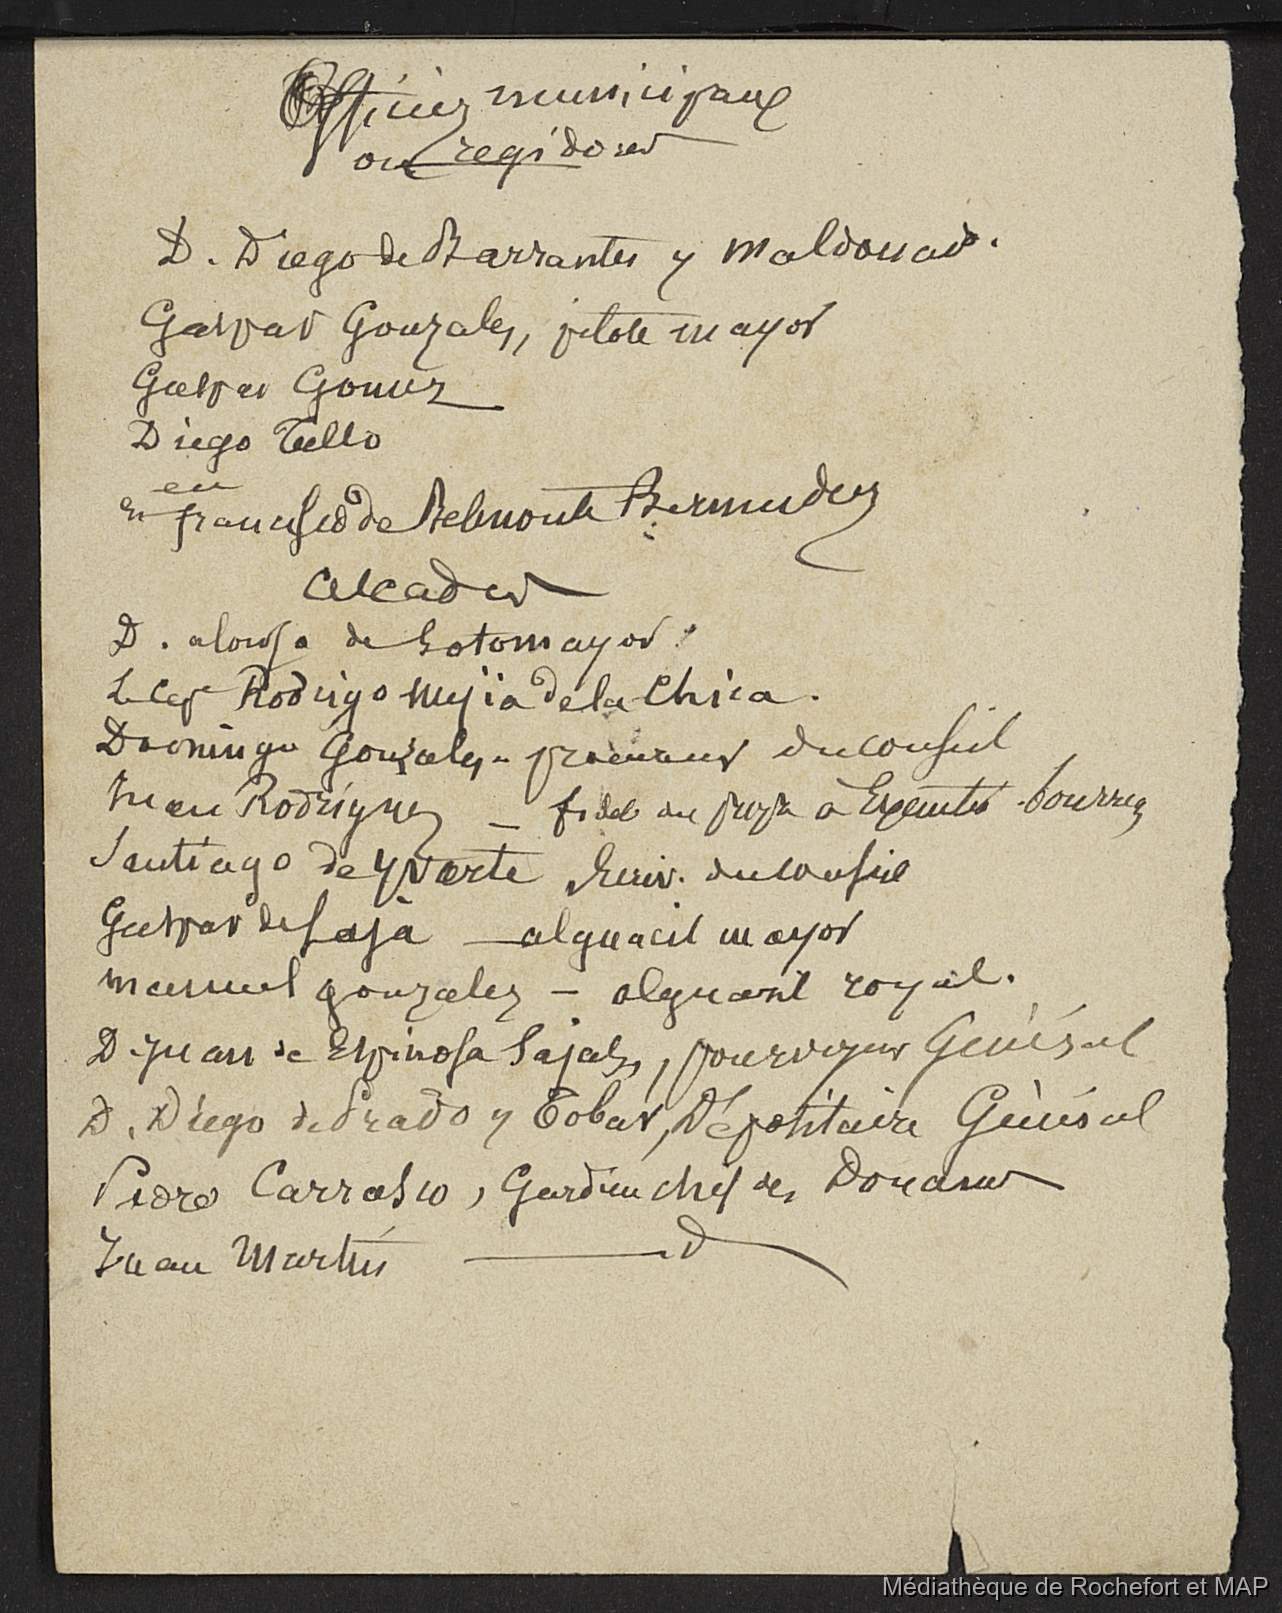 Officiers municipaux
ou regidores
D. Diego de Barrantes y Maldonado.
Gaspar Gonzales, pilote mayor
Gaspar Gomez
Diego Tello
en
et Francisco de Belmonte Bermudez
Alcades
D. alonso de Sotomayor
Le Cap Rodrigo Mejia de la Chica.
Domingo Gonzales - procureur du conseil
Juan Rodriguez — fidel
Santiago de Yrarte Ecriv. du conseil
Gaspar de Laja — alguacil mayor
manuel gonzalez — alguacil royal.
D. Juan de Espinosa Sajales, pourvoyeur Général
D. Diego de Prado y Tobar, Dépositaire Général
Pedro Carrasco, Gardien chef des Douanes
Juan Martin — d
Médiathèque de Rochefort et MAP